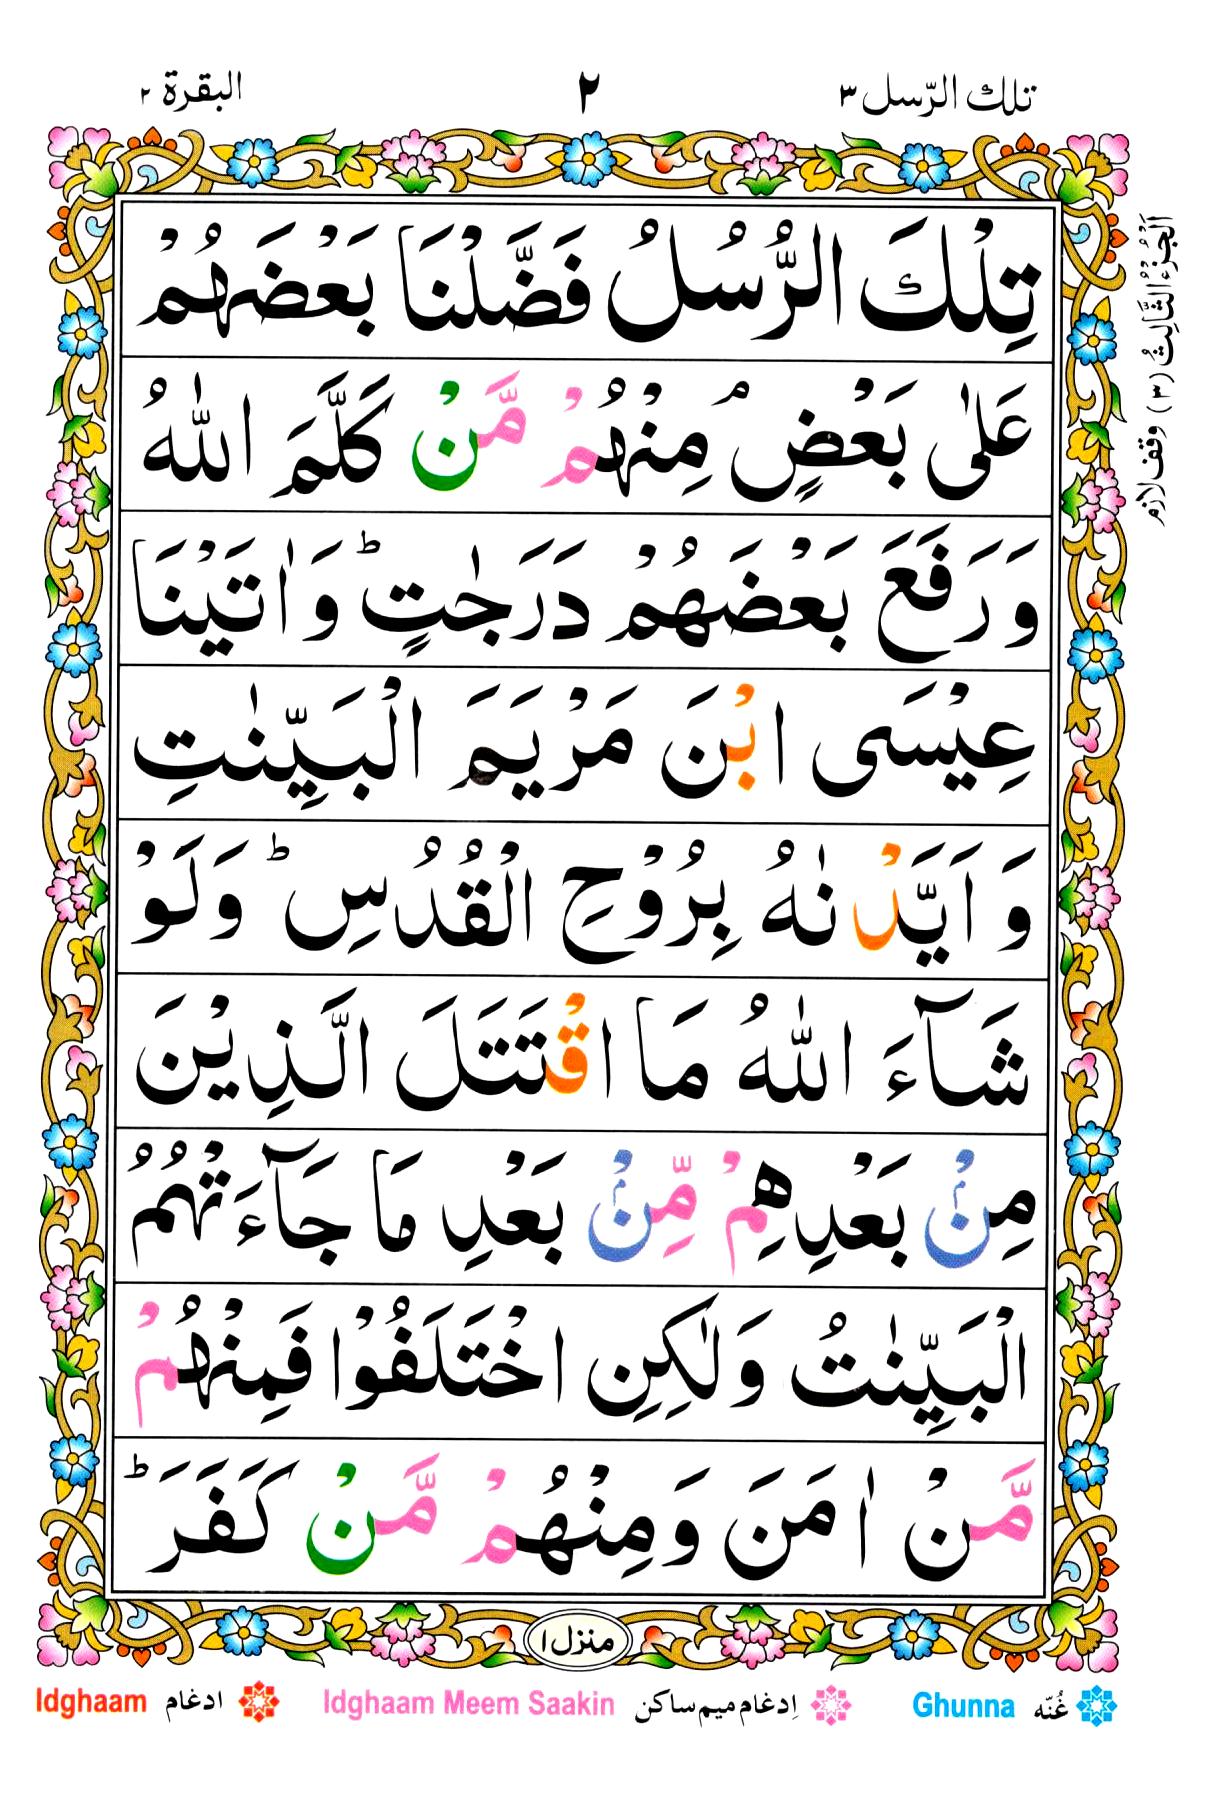 تلك الرّسل ٣
٢
البقرة ٢
اَلْجُزْءُ الثَّالِثُ (٣) وقف لازم
تِلْكَ الرُّسُلُ فَضَّلْنَا بَعْضَهُمْ
عَلٰى بَعْضٍ ۘ مِنْهُمْ مَّنْ كَلَّمَ اللّٰهُ
وَرَفَعَ بَعْضَهُمْ دَرَجٰتٍ ؕ وَاٰتَيْنَا
عِيْسَى ابْنَ مَرْيَمَ الْبَيِّنٰتِ
وَاَيَّدْنٰهُ بِرُوْحِ الْقُدُسِ ؕ وَلَوْ
شَآءَ اللّٰهُ مَا اقْتَتَلَ الَّذِيْنَ
مِنْۢ بَعْدِهِمْ مِّنْۢ بَعْدِ مَا جَآءَتْهُمُ
الْبَيِّنٰتُ وَلٰكِنِ اخْتَلَفُوْا فَمِنْهُمْ
مَّنْ اٰمَنَ وَمِنْهُمْ مَّنْ كَفَرَ ؕ
منزل ١
Idghaam ادغام Idghaam Meem Saakin اِدغام ميم ساكن Ghunna غُنّه